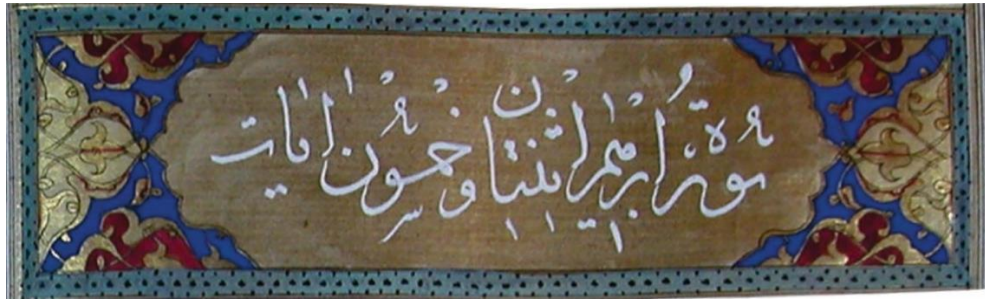 سورة ابرهيم اثنتان وخمسون ايات